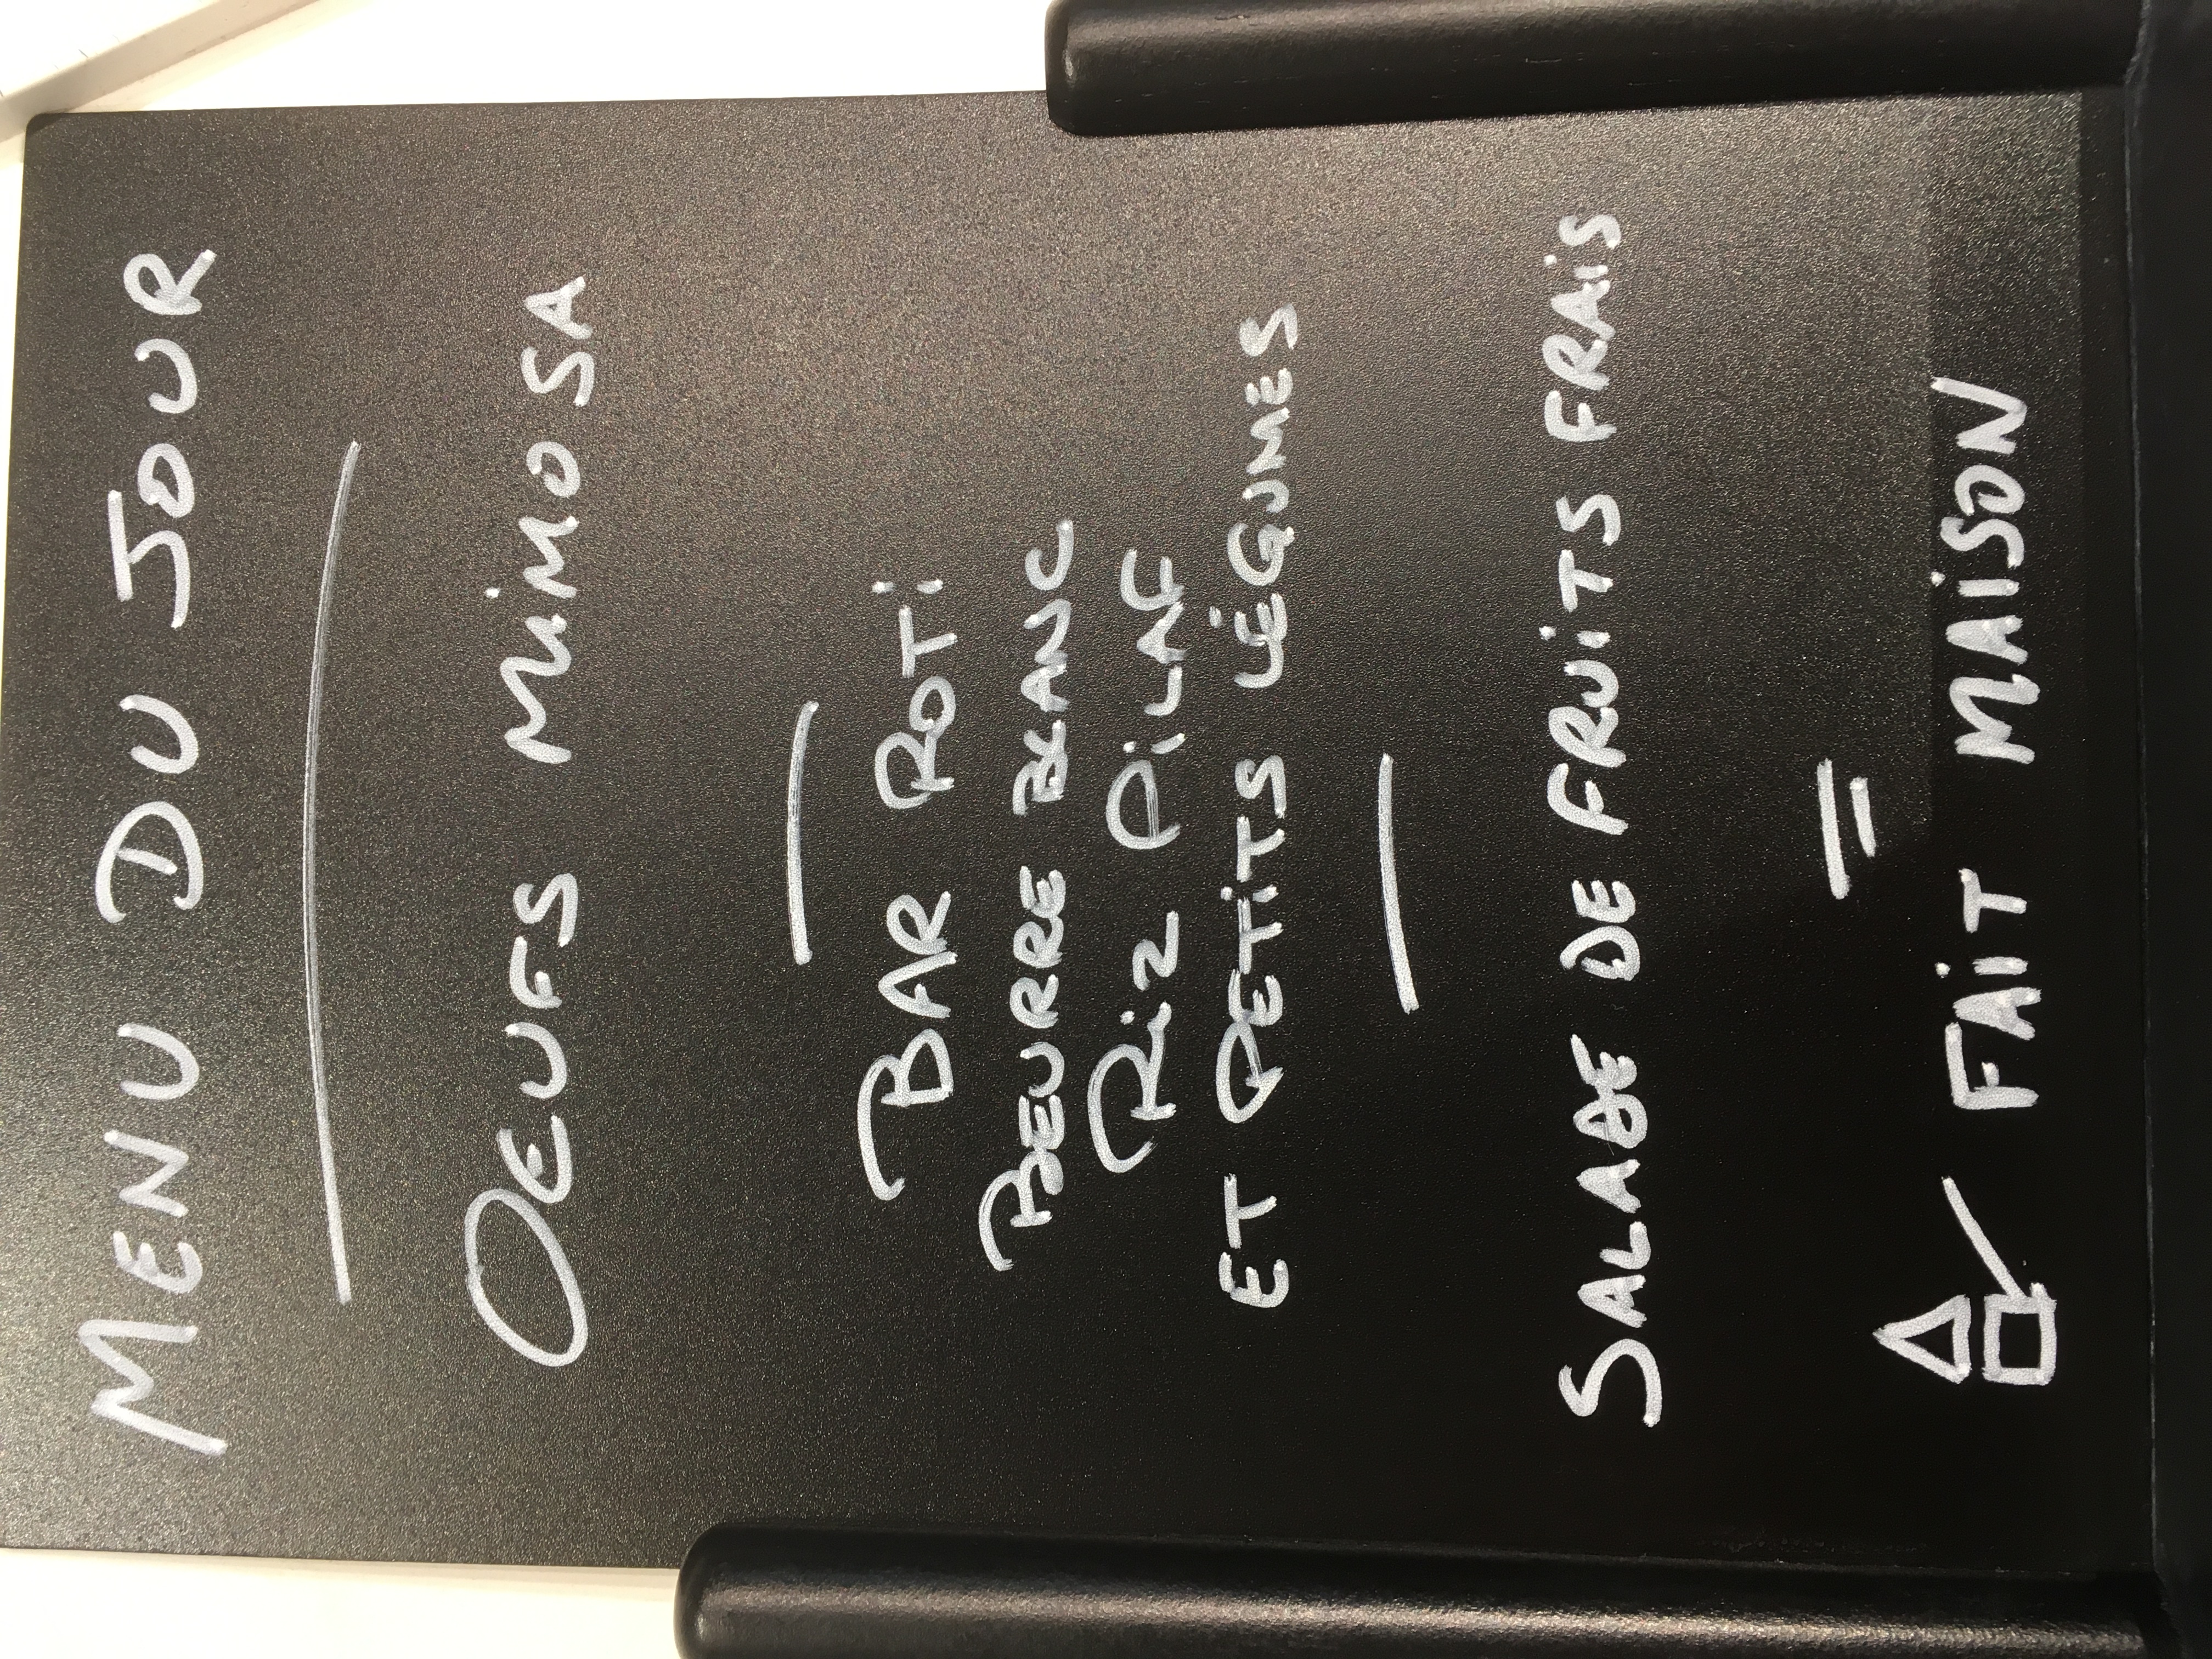 MENU DU JOUR
OEUFS MiMOSA
BAR ROTi
BEURRE BLANC
RiZ PiLAF
ET PETiTS LÉGUMES
SALADE DE FRUiTS FRAiS
FAiT MAiSON